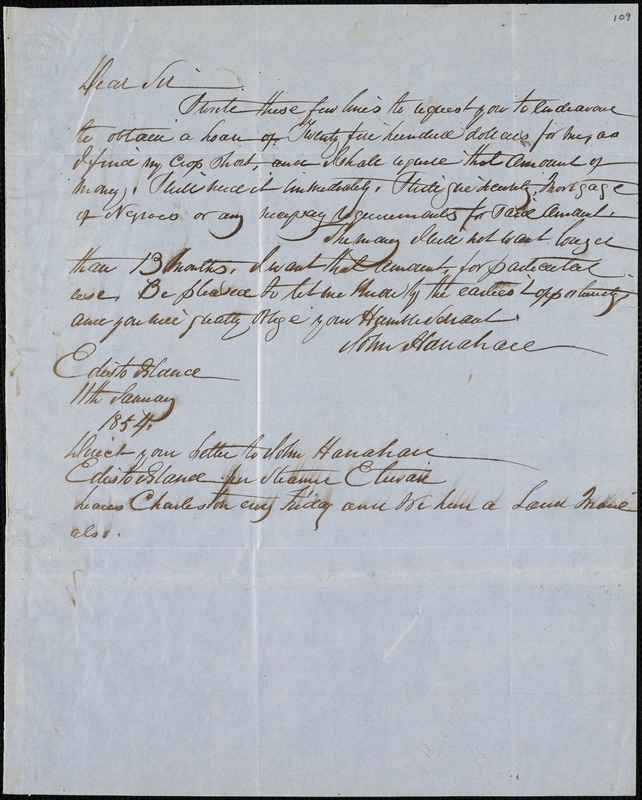 109
Dear Sir
I write these few lines to request you to endeavour
to obtain a Loan of Twenty five hundred dollars for me, as
I find my Crop Short, and I shall require that amount of
money. I will need it immediately. I will give security, Mortgage
of Negroes or any necessary requirements for said Amount.
The money I will not want longer
than 13 Months. I want that Amount, for particular
use. Be pleased to let me know by the earliest opportunity
and you will greatly oblige your Humble Servant
John Hanahan
Edisto Island
11th January
1854.
Direct your Letter to John Hanahan
Edisto Island per Steamer Etiwan
leaves Charleston every Friday and We have a Land
also.